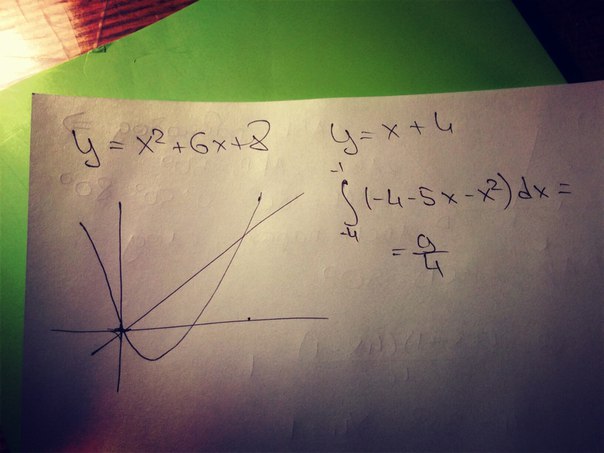 y = x² + 6x + 8
y = x + 4
∫₋₄⁻¹ (-4 - 5x - x²) dx =
= 9/4